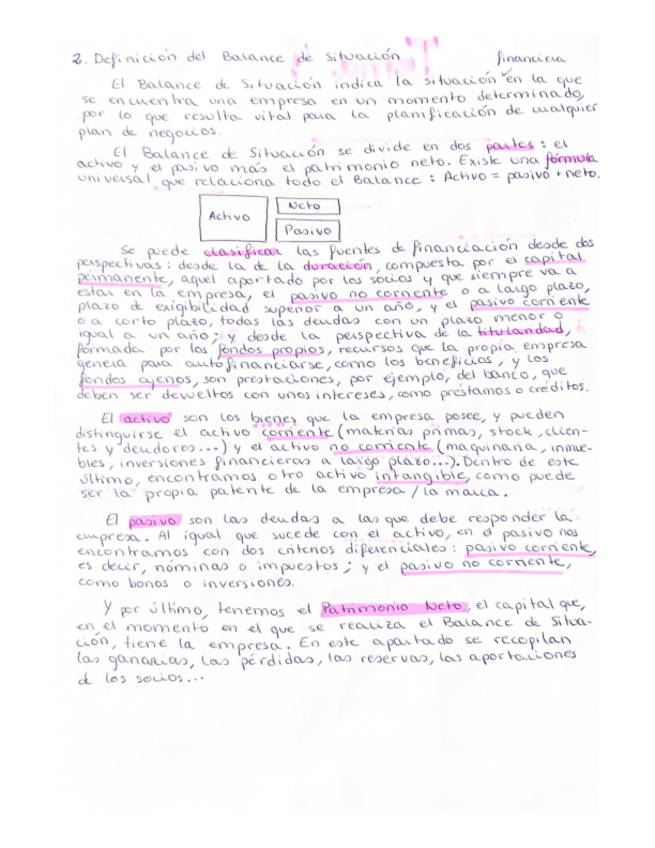 2. Definición del Balance de Situación
financiera
El Balance de Situación indica la situación en la que
se encuentra una empresa en un momento determinado,
por lo que resulta vital para la planificación de cualquier
plan de negocios.
El Balance de Situación se divide en dos partes: el
activo y el pasivo más el patrimonio neto. Existe una fórmula
universal que relaciona todo el Balance: Activo = pasivo + neto.
Activo
Neto
Pasivo
Se puede clasificar las fuentes de financiación desde dos
perspectivas: desde la de la duración, compuesta por el capital
permanente, aquel aportado por los socios y que siempre va a
estar en la empresa, el pasivo no corriente o a largo plazo,
plazo de exigibilidad superior a un año, y el pasivo corriente
o a corto plazo, todas las deudas con un plazo menor o
igual a un año; y desde la perspectiva de la titularidad,
formada por los fondos propios, recursos que la propia empresa
genera para autofinanciarse, como los beneficios, y los
fondos ajenos, son prestaciones, por ejemplo, del banco, que
deben ser devueltos con unos intereses, como préstamos o créditos.
El activo son los bienes que la empresa posee, y pueden
distinguirse el activo corriente (materias primas, stock, clien-
tes y deudores...) y el activo no corriente (maquinaria, inmue-
bles, inversiones financieras a largo plazo...). Dentro de este
último, encontramos otro activo intangible, como puede
ser la propia patente de la empresa / la marca.
El pasivo son las deudas a las que debe responder la
empresa. Al igual que sucede con el activo, en el pasivo nos
encontramos con dos criterios diferenciales: pasivo corriente,
es decir, nóminas o impuestos; y el pasivo no corriente,
como bonos o inversiones.
Y por último, tenemos el Patrimonio Neto, el capital que,
en el momento en el que se realiza el Balance de Situa-
ción, tiene la empresa. En este apartado se recopilan
las ganancias, las pérdidas, las reservas, las aportaciones
d los socios...